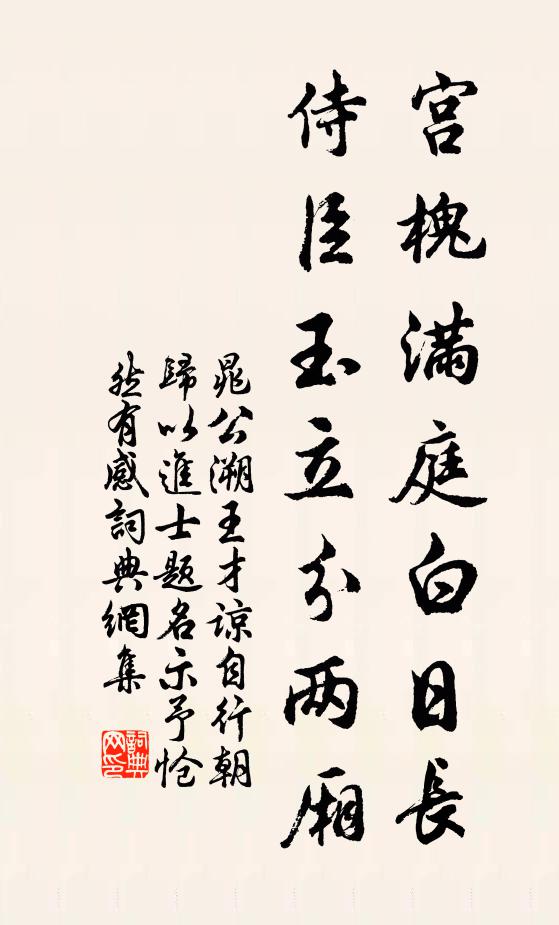 宫槐满庭白日長
侍臣玉立分两厢
晁公溯王才谅自行朝
歸以進士题名示予怆
然有感詞典網集
詞典网印